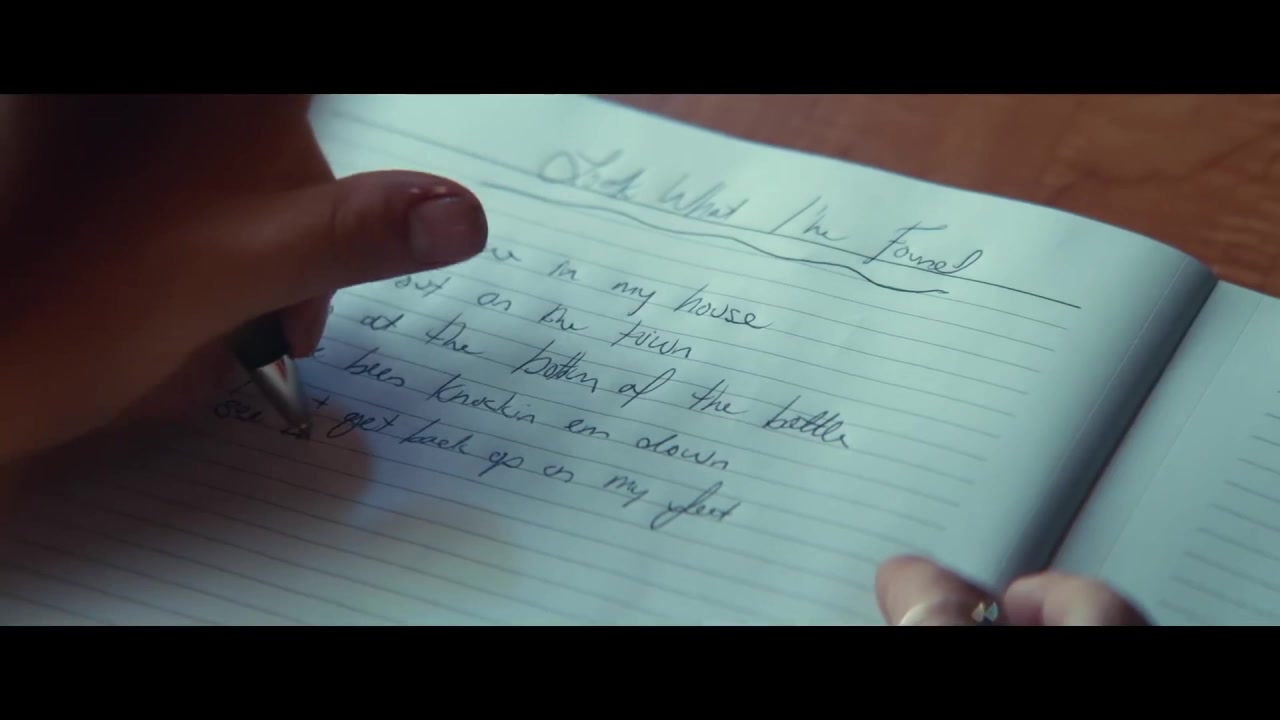 Look What I've Found
in my house
out on the town
at the bottom of the bottle
been knockin em down
get back up on my feet
see